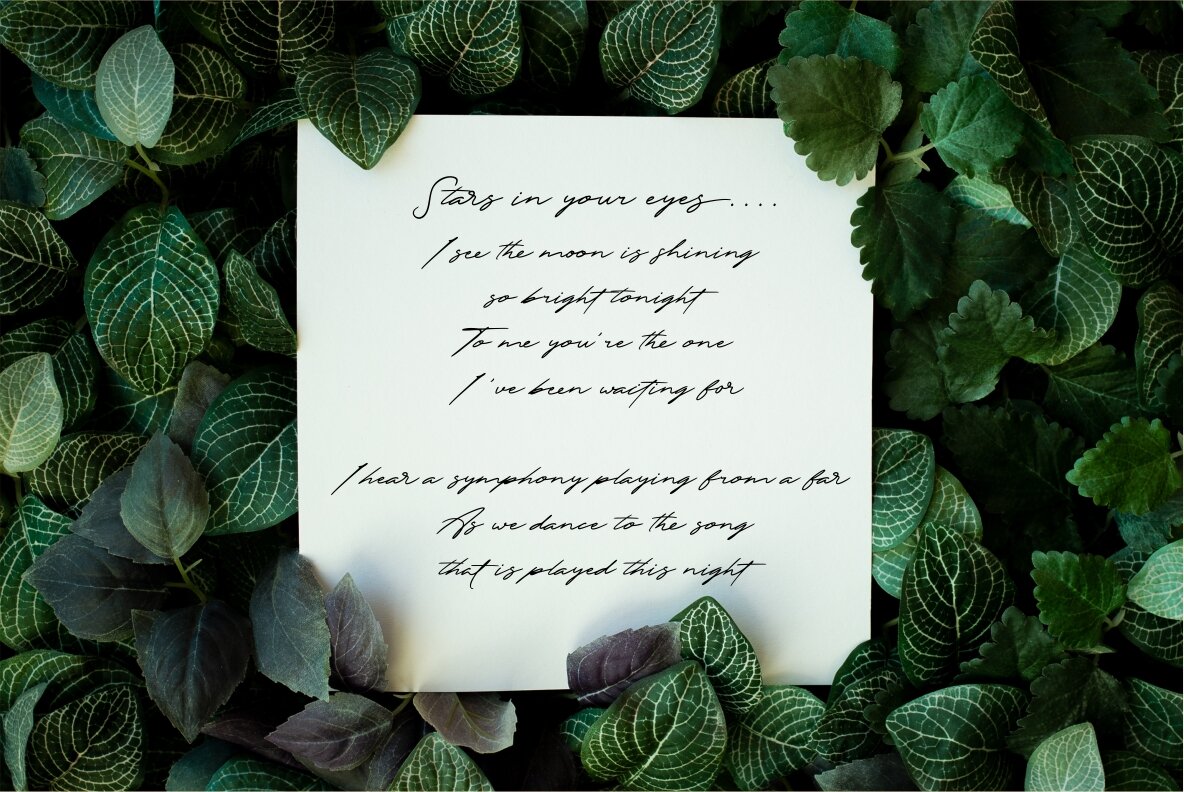 Stars in your eyes....
I see the moon is shining
so bright tonight
To me you're the one
I've been waiting for
I hear a symphony playing from a far
As we dance to the song
that is played this night